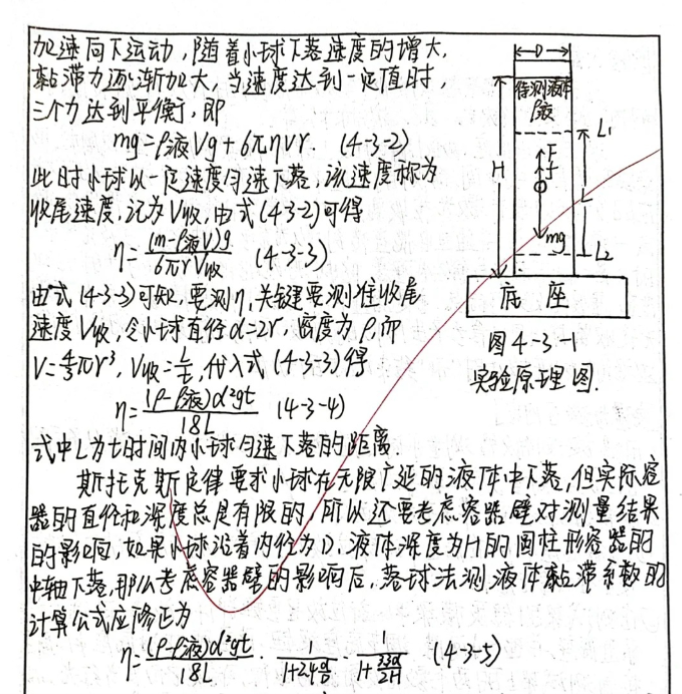 加速向下运动,随着小球下落速度的增大,
黏滞力逐渐加大,当速度达到一定值时,
三个力达到平衡,即
mg=ρ液Vg+6πηvr. (4-3-2)
此时小球以一定速度匀速下落,该速度称为
收尾速度,记为V收,由式(4-3-2)可得
η=(m-ρ液V)g/6πrV收 (4-3-3)
由式(4-3-3)可知,要测η,关键要测准收尾
速度V收,令小球直径d=2r,密度为ρ,而
V=4/3πr³,V收=L/t,代入式(4-3-3)得
η=(ρ-ρ液)d²gt/18L (4-3-4)
式中L为t时间内小球匀速下落的距离.
斯托克斯定律要求小球在无限广延的液体中下落,但实际容
器的直径和深度总是有限的,所以还要考虑容器壁对测量结果
的影响,如果小球沿着内径为D,液体深度为H的圆柱形容器的
中轴下落,那么考虑容器壁的影响后,落球法测液体黏滞系数的
计算公式应修正为
η=(ρ-ρ液)d²gt/18L·1/1+2.4d/D·1/1+3.3d/2H (4-3-5)
D
待测液体
ρ液
L1
H
F
f
L
mg
L2
底座
图4-3-1
实验原理图.